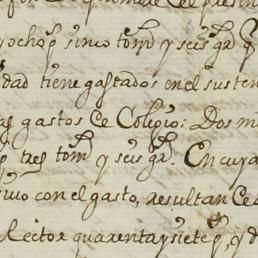 yocho p.s sinco tom.s y seis g.s q
dad tiene gastados en el susten
as gastos de Colegio: Dos m
p.s tres tom.s y seis g.s. En cuya
sivo con el gasto, resultan
Rector quarenta y siete p.s, y d